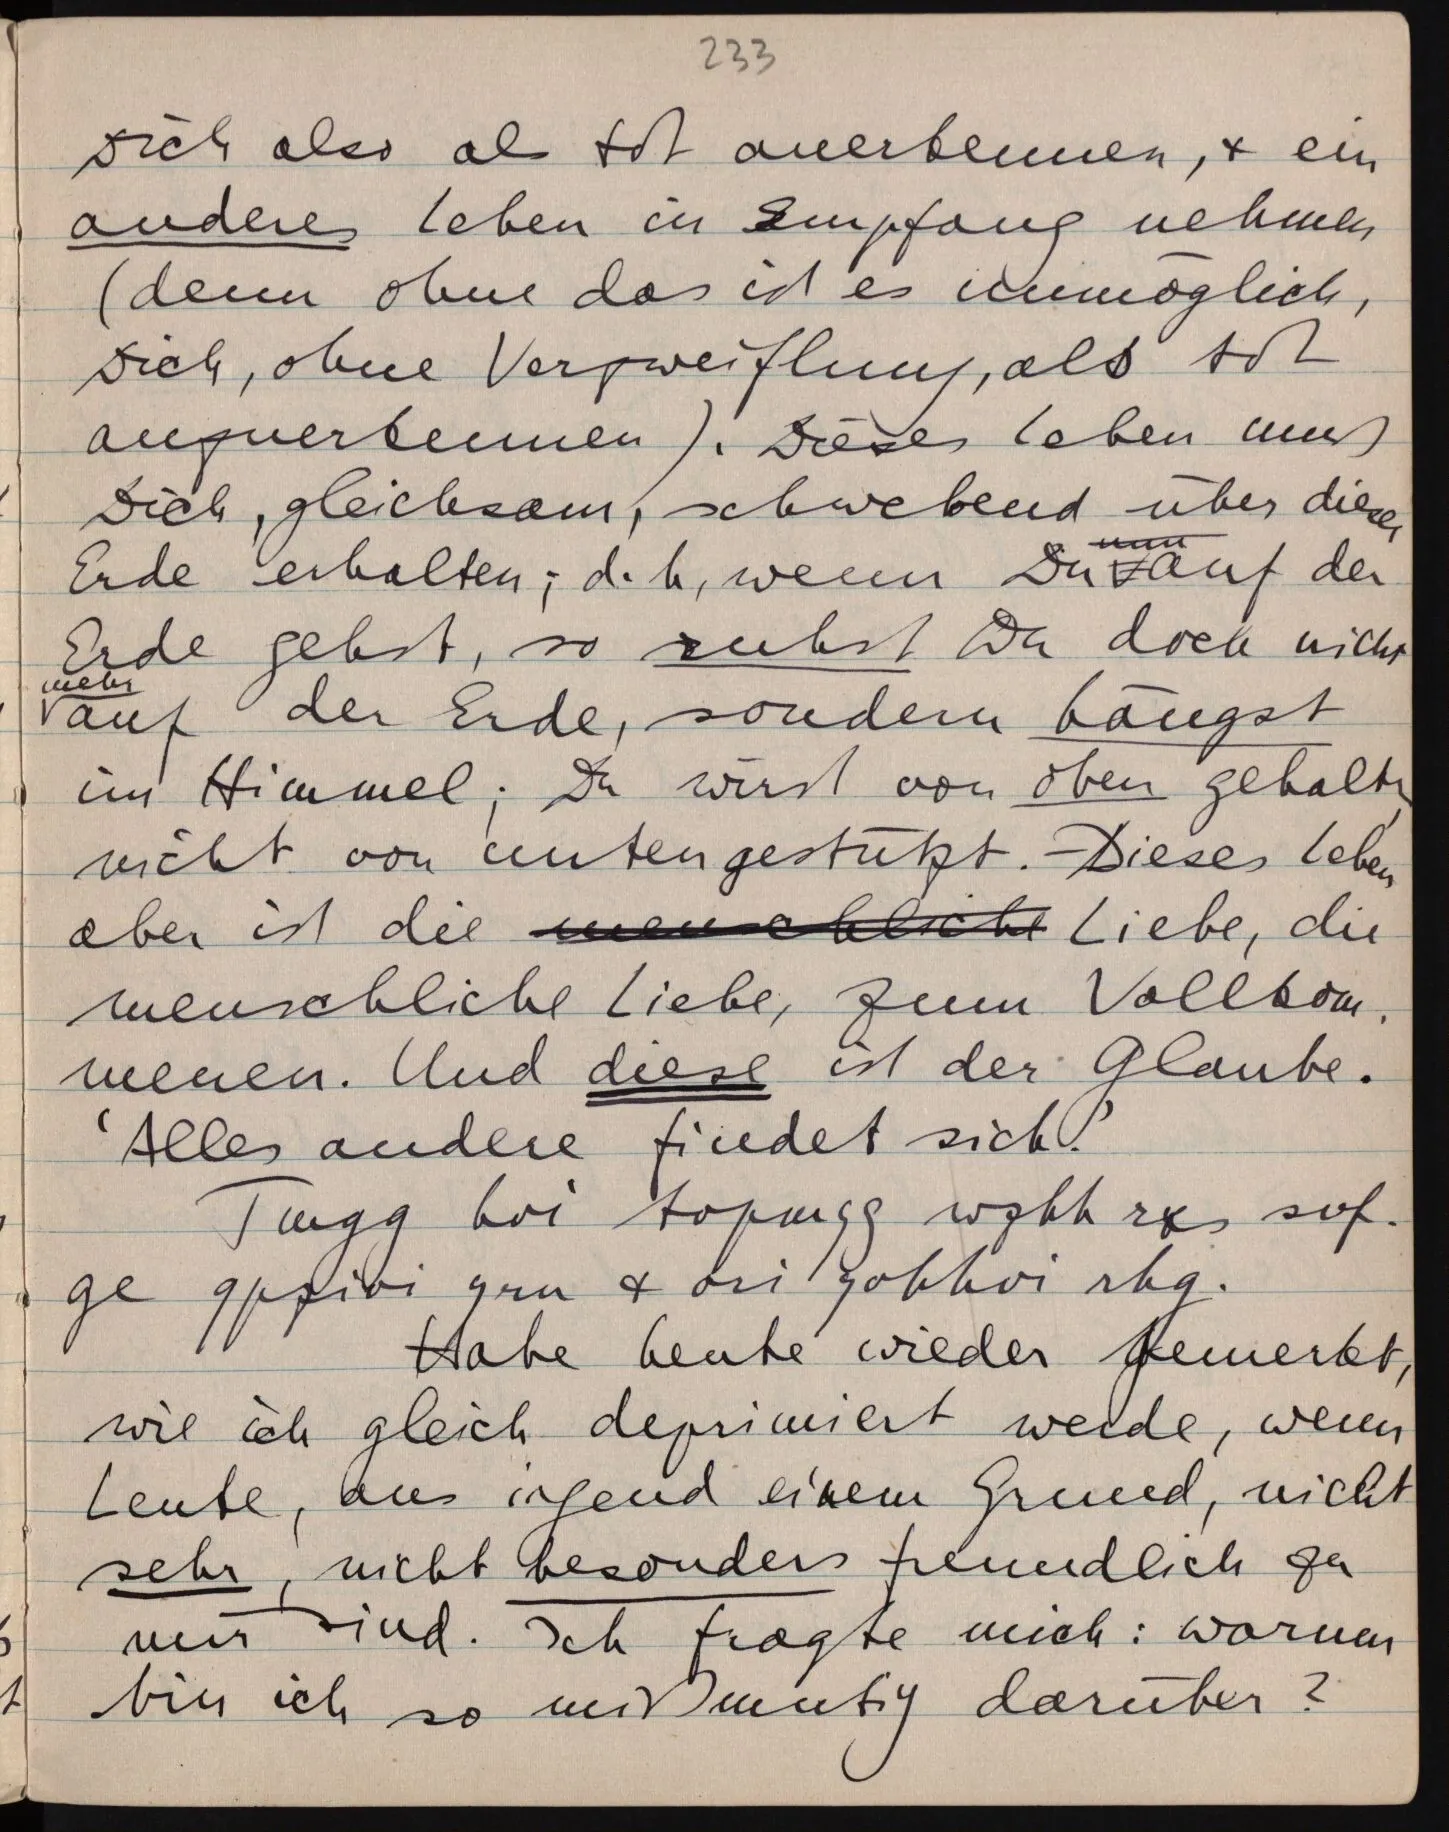 233
Dich also als tot anerkennen, & ein
anderes Leben in Empfang nehmen
(denn ohne das ist es unmöglich,
Dich, ohne Verzweiflung, als tot
anzuerkennen). Dieses Leben muß
Dich, gleichsam, schwebend über dieser
Erde erhalten; d.h, wenn Du nun auf der
Erde gehst, so ruhst Du doch nicht
mehr auf der Erde, sondern hängst
im Himmel; Du wirst von oben gehalten,
nicht von unten gestützt. – Dieses Leben
aber ist die menschliche Liebe, die
menschliche Liebe, zum Vollkom-
menen. Und diese ist der Glaube.
‘Alles andere findet sich.’
hvi wzhh rxs
& ori rhg.
Habe heute wieder gemerkt,
wie ich gleich deprimiert werde, wenn
Leute, aus irgend einem Grund, nicht
sehr, nicht besonders freundlich zu
mir sind. Ich fragte mich: warum
bin ich so mißmutig darüber?